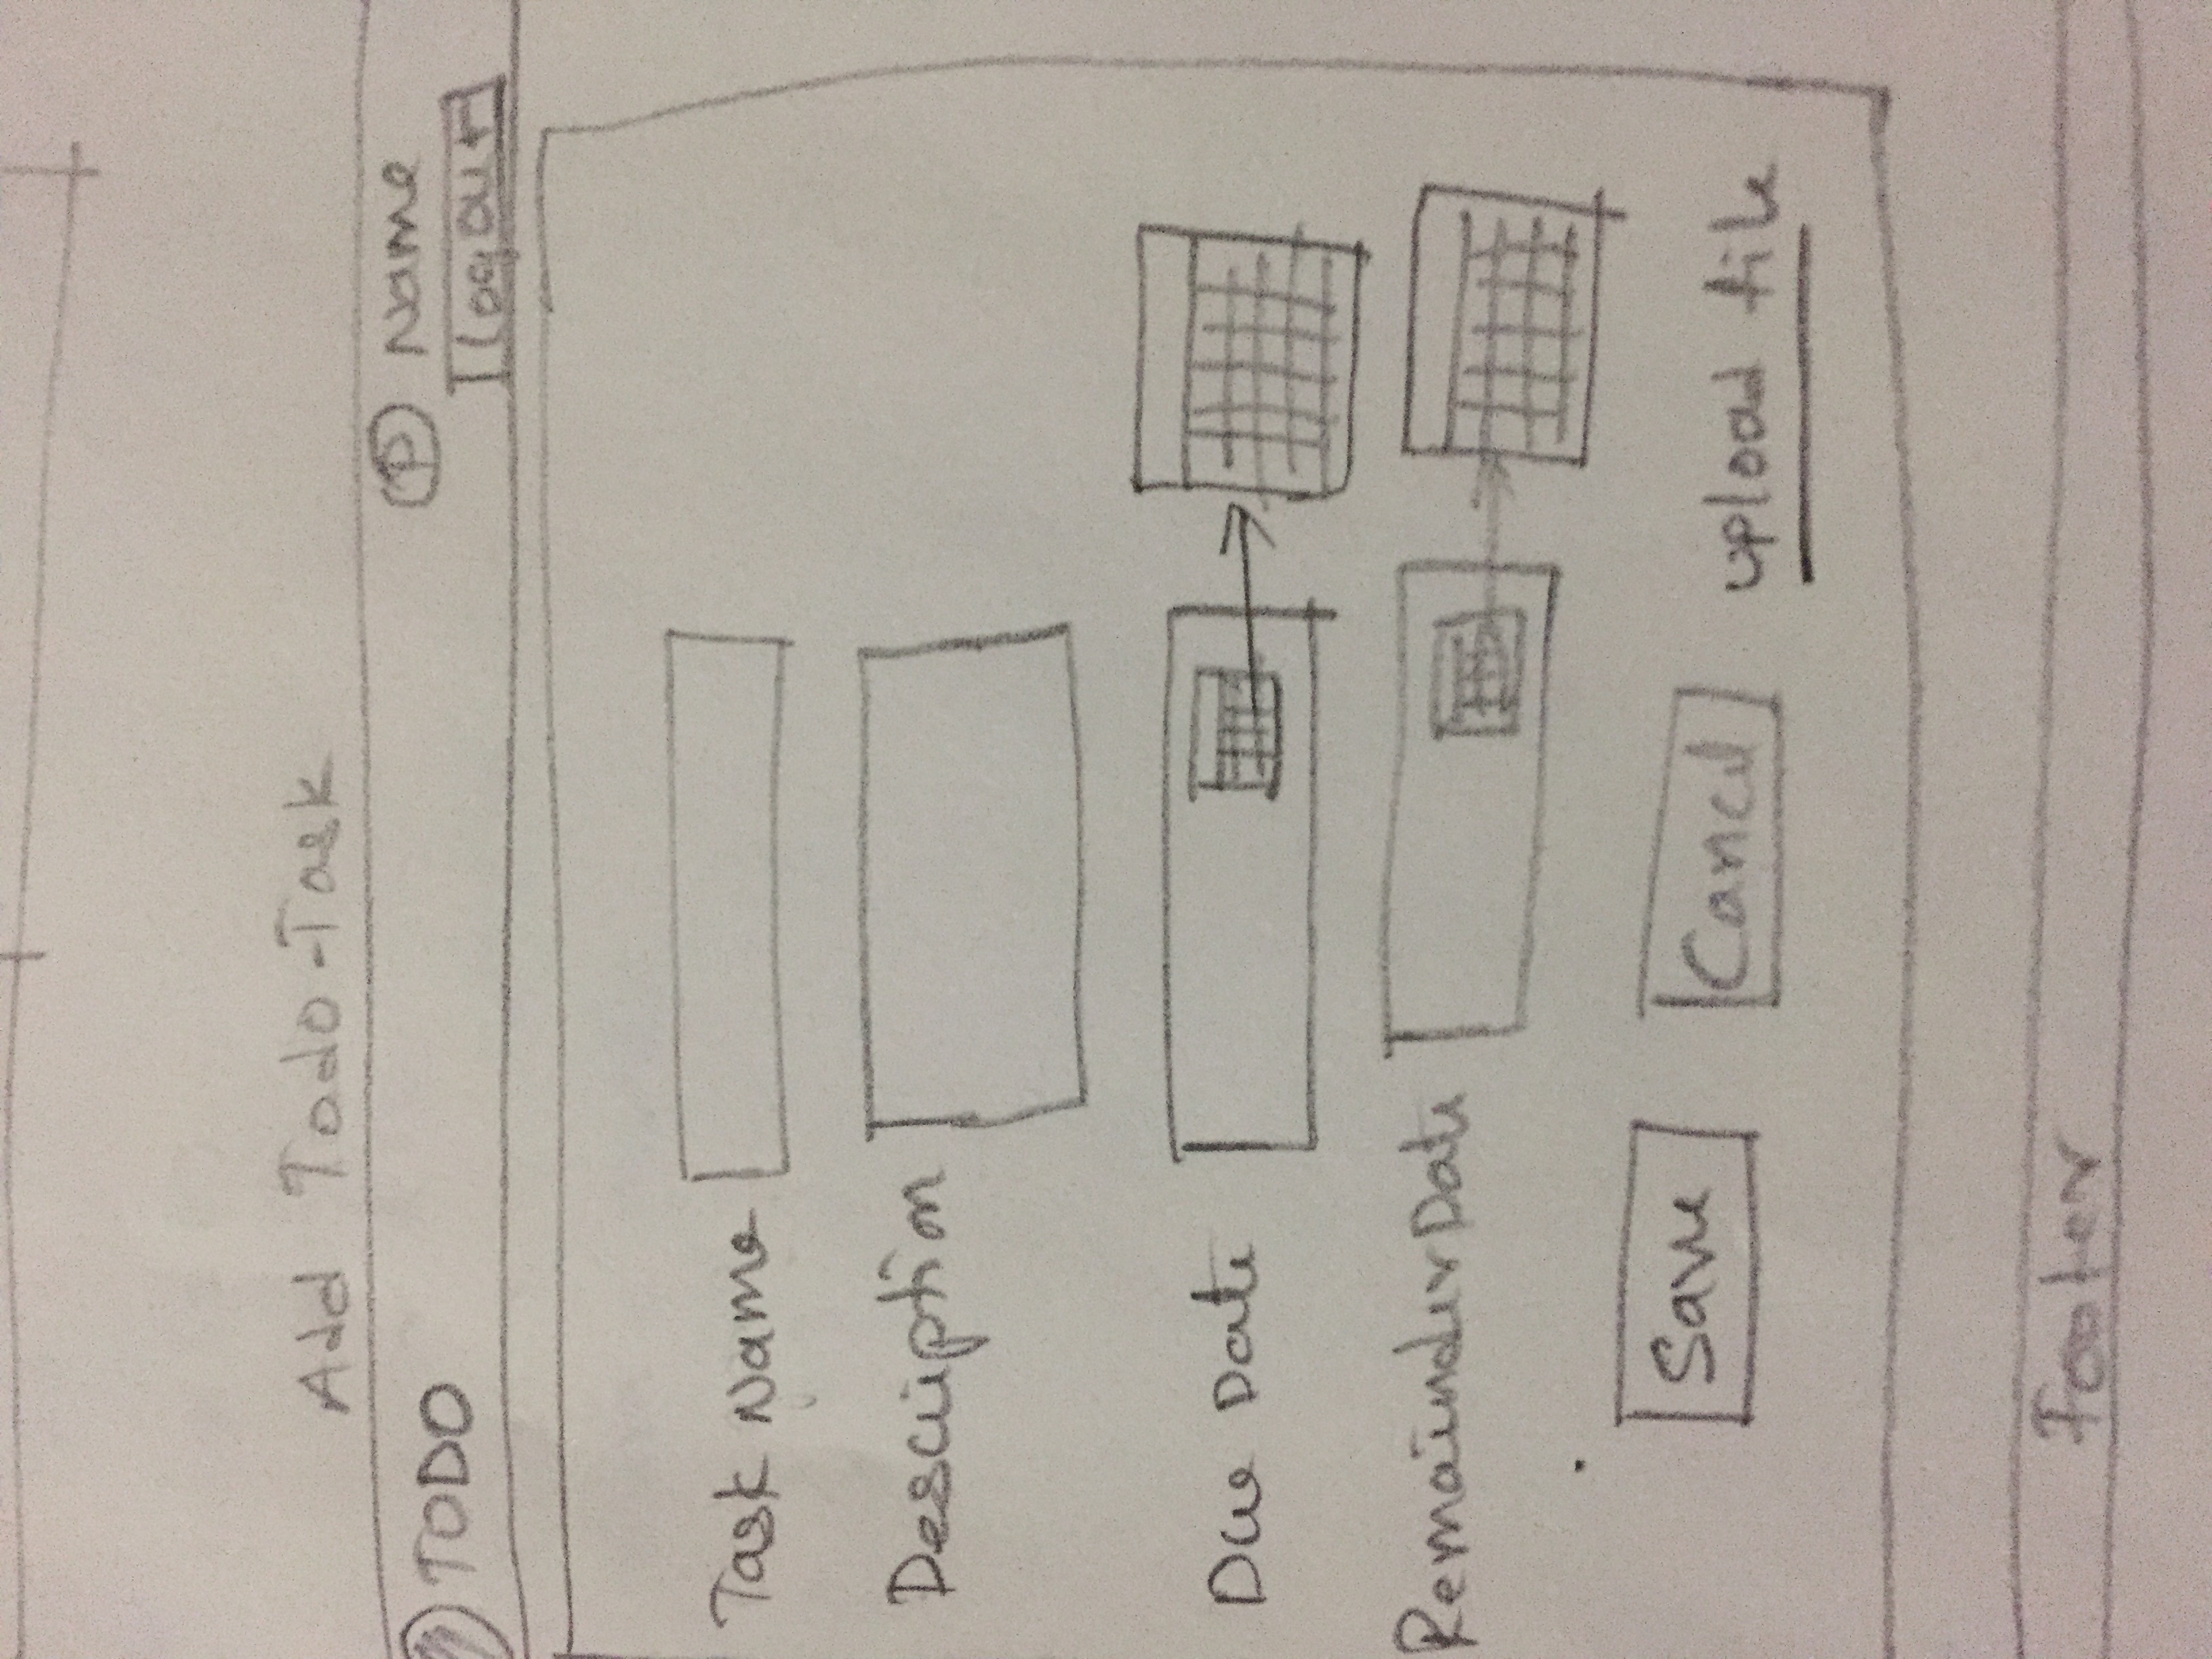 Add Todo-Task
TODO
P Name
Logout
Task Name
Description
Due Date
Remainder Date
Save
Cancel
upload file
Footer